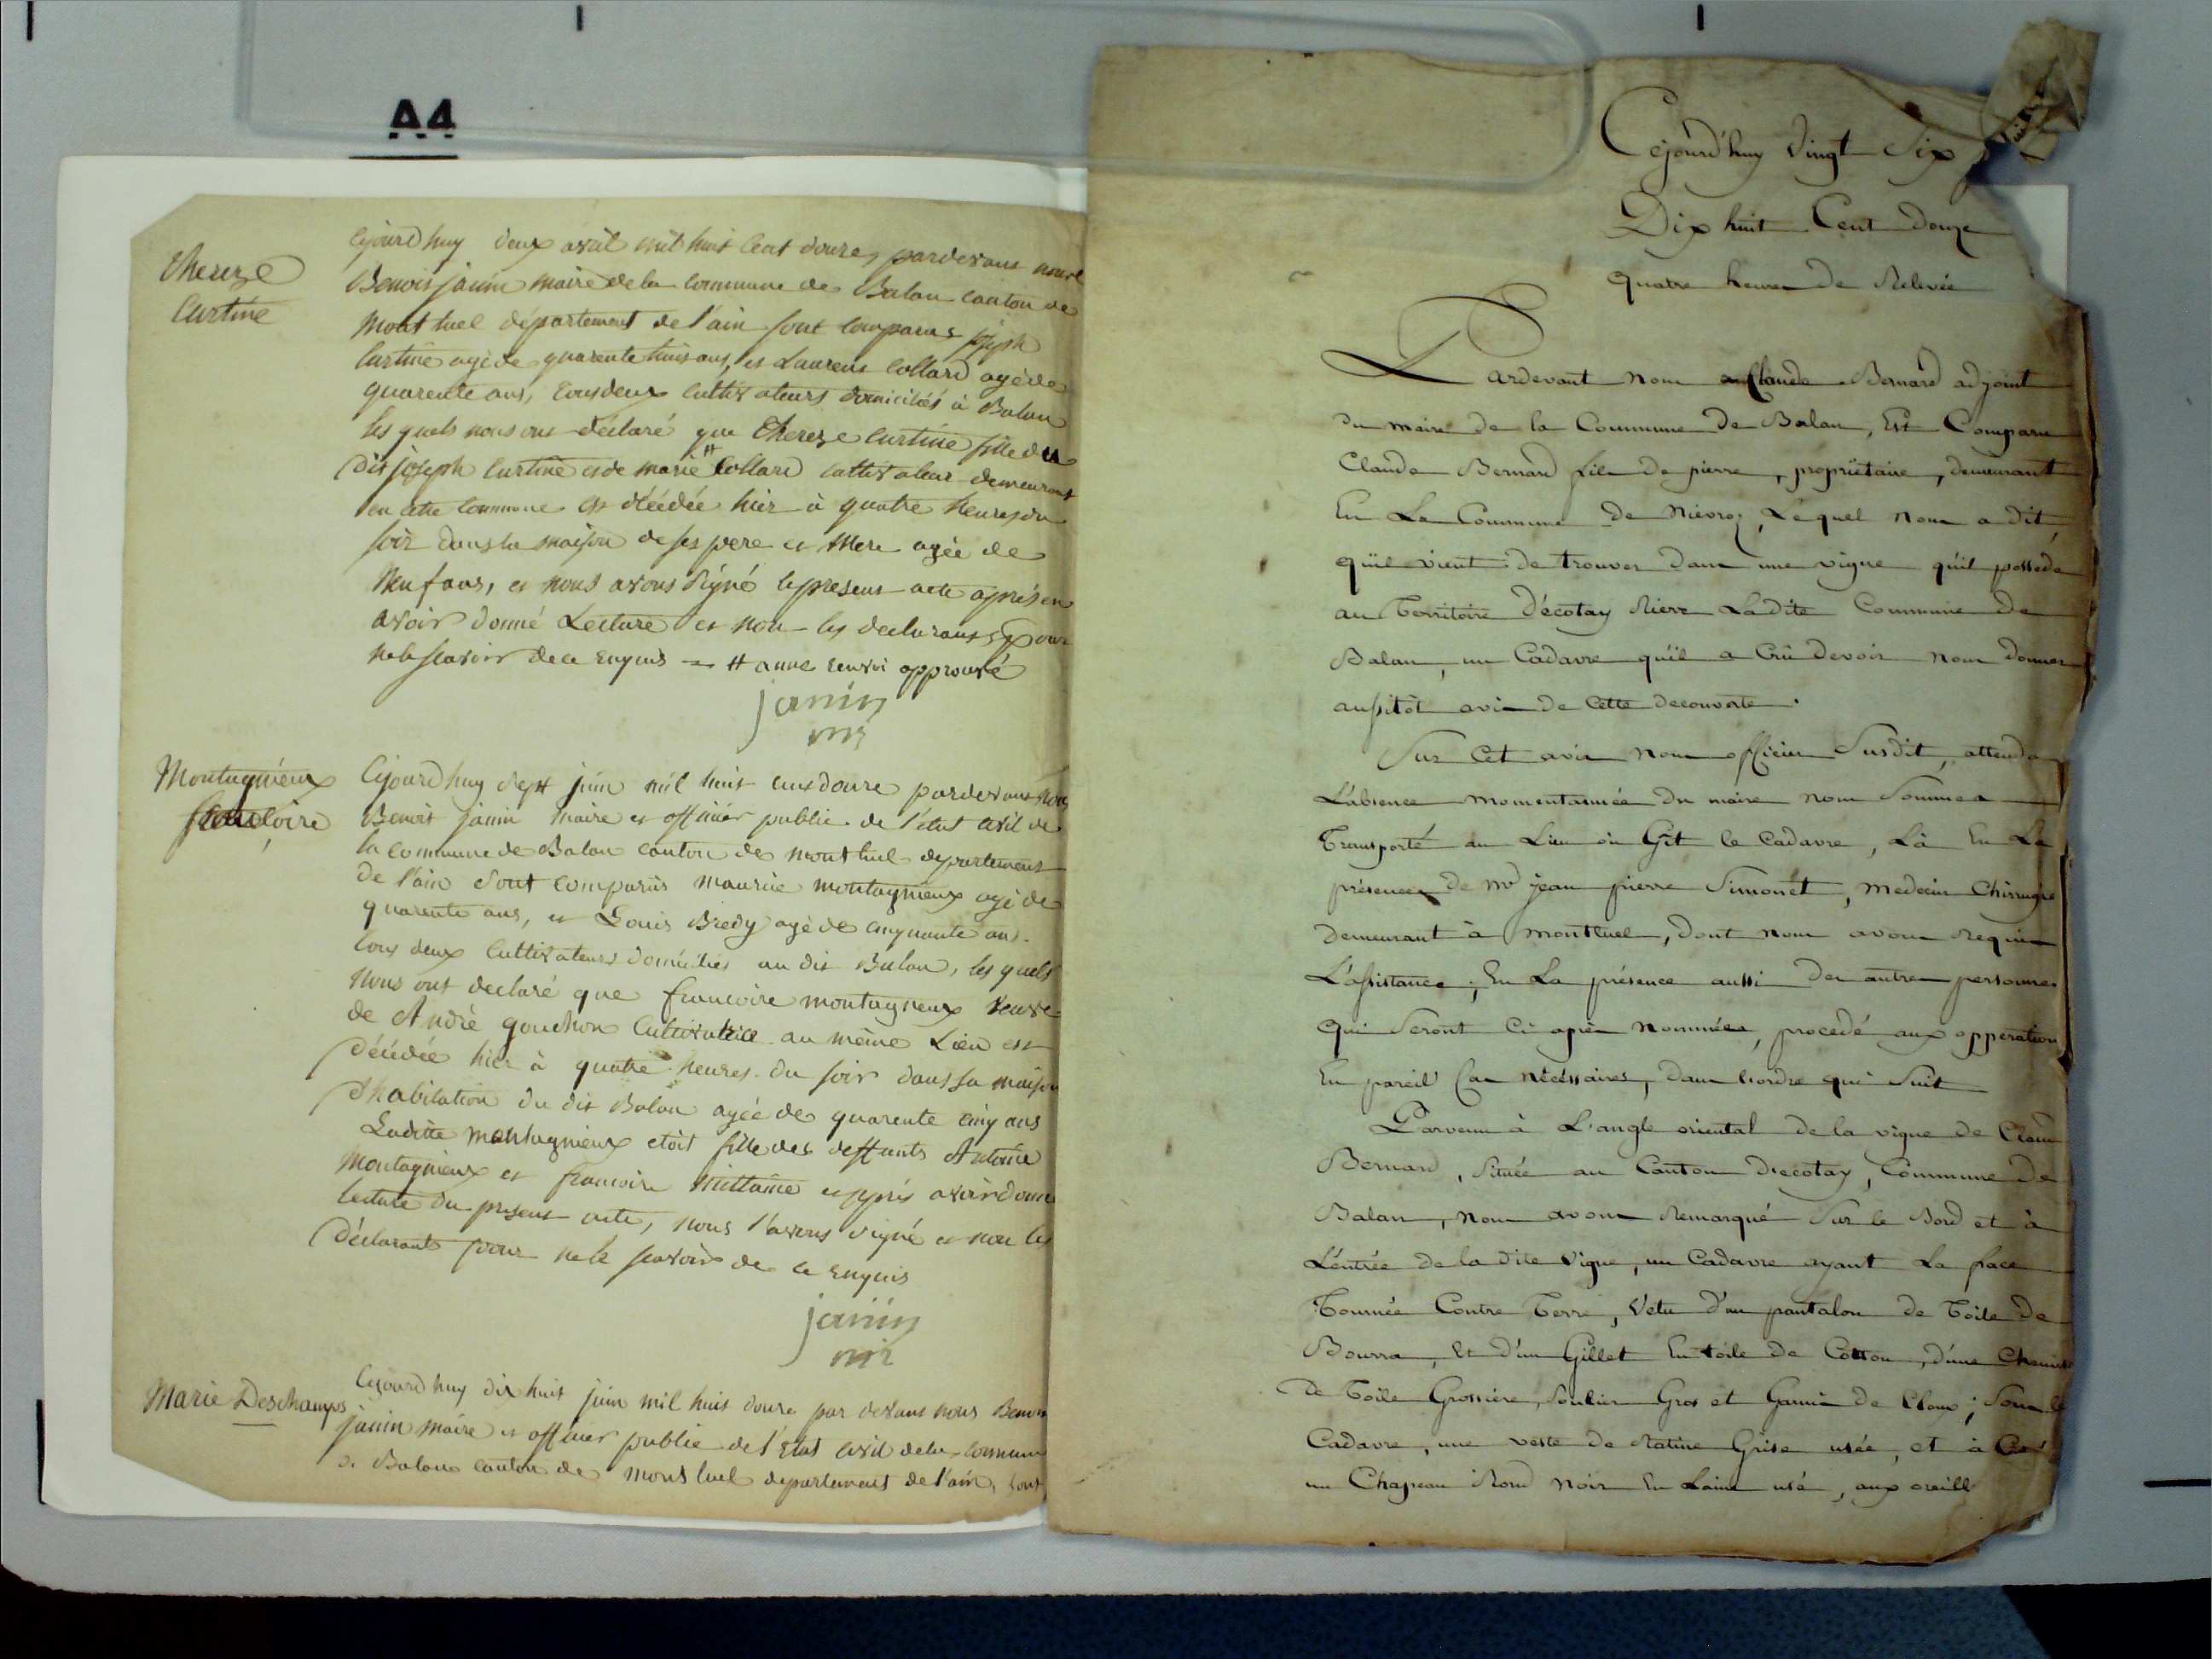 A4
Thereze
Curtine
Cejourd huy deux avril mil huit cent douze, pardevant nous
Benoit janin maire de la commune de Balan canton de
Montluel departement de l'ain sont comparus joseph
Curtine agé de quarente huit ans, et Laurent Collard agé de
quarente ans, tous deux cultivateurs domiciliés à Balan
les quels nous ont déclaré que Thereze Curtine fille du
dit joseph Curtine et de marie # Collard cultivateur demeurant
en cette commune est décédée hier à quatre heures du
soir dans la maison de ses pere et mere agée de
neuf ans, et nous avons signé le present acte après en
avoir donné Lecture et non les declarants pour
ne le scavoir de ce enquis = # anne renvoi approuvé
janin
Montagnieux
francoise
Cejourd huy sept juin mil huit cens douze pardevant nous
Benoit janin maire et officier public de l'état civil de
la commune de Balan canton de montluel departement
de l'ain sont comparus maurice montagnieux agé de
quarente ans, et Louis Bredy agé de cinquante ans
tous deux Cultivateurs domiciliés au dit Balan, les quels
nous ont declaré que francoise montagneux veuve
de André gouchon Cultivatrice au même Lieu est
décédée hier à quatre heures du soir dans sa maison
d'habitation du dit Balan agée de quarente cinq ans
Laditte montagnieux etoit fille des deffunts Antoine
Montagnieux et francoise Mittaine et après avoir donné
lecture du present acte, nous l'avons signé et non les
déclarants pour ne le scavoir de ce enquis
janin
Marie Deschamps
Cejourd huy dix huit juin mil huit douze par devant nous Benoit
janin maire et officier public de l'Etat civil de la commune
de Balan canton de montluel departement de l'ain, sont
Cejourd'huy Vingt Six
Dix huit Cent douze
quatre heures de Relevée
Pardevant nous Claude Bernard adjoint
du maire de la Commune de Balan, Est Comparu
Claude Bernard fils de pierre, propriétaire, demeurant
En La Commune de Niévroz, Lequel nous a dit
qu'il vient de trouver dans une vigne qu'il possede
au Territoire d'écotay Rierre Ladite Commune de
Balan, un Cadavre qu'il a Crû devoir nous donner
aussitôt avis de Cette decouverte.
Sur Cet avis nous officier Susdit, attendu
L'absence momentannée du maire nous Sommes
Transporté au Lieu où Gît le Cadavre, Là En La
présence de mr jean pierre Simonet, medecin Chirurgien
demeurant à montluel, dont nous avons Requis
L'assistance; En La présence aussi des autres personnes
qui Seront Ci après nommées, procédé aux opperations
En pareil Cas nécéssaires, dans l'ordre qui Suit
Parvenu à L'angle oriental de la vigne de Claude
Bernard, Située au Canton d'ecotay, Commune de
Balan, nous avons Remarqué Sur le Bord et à
L'entrée de la dite Vigne, un Cadavre ayant La face
Tournée Contre Terre, Vetu d'un pantalon de Toile de
Bourra, Et d'un Gillet En toile de Cotton, d'une Chemise
de Toile Grossière, Soulier Gros et Garnis de Cloux; Sous le
Cadavre, une veste de Ratine Grise usée, et à Coté
un Chapeau Rond noir En Laine usé, aux oreill